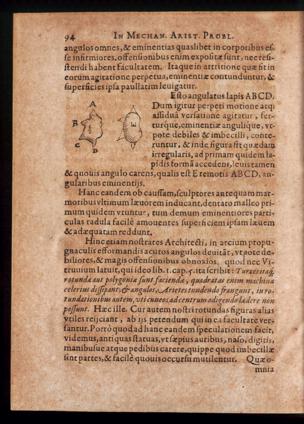 94 IN MECHAN. ARIST. PROBL.
angulos omnes, & eminentias quaslibet in corporibus es-
se infirmiores, offensionibus enim expositæ sunt, nec resi-
stendi habent facultatem. Itaque in attritione quæ fit in
eorum agitatione perpetua, eminentiæ contunduntur, &
superficies ipsa paullatim leuigatur.
Esto angulatus lapis ABCD.
Dum igitur perpeti motione atq;
assidua versatione agitatur, fer-
turque, eminentiæ angulique, vt-
pote debiles & imbecilli, conte-
runtur, & inde figura fit quædam
irregularis, ad primum quidem la-
pidis formā accedens, leuis tamen
& quouis angulo carens, qualis est E remotis ABCD, an-
gularibus eminentijs.
A
B
C
D
Hanc eandem ob caussam, sculptores antequam mar-
moribus vltimum læuorem inducant, dentato malleo pri-
mum quidem vtuntur, tum demum eminentiores parti-
culas radula facilè amouentes superficiem ipsam læuem
& adæquatam reddunt.
Hinc etiam nostrates Architecti, in arcium propu-
gnaculis efformandis acutos angulos deuitāt, vtpote de-
biliores, & magis offensionibus obnoxios, quod nec Vi-
truuium latuit, qui ideo lib. 1. cap. 5. ita scribit: Turres itaq;
rotundæ aut polygoniæ sunt faciendæ, quadratas enim machinæ
celerius dissipant, & angulos, Arietes tundendo frangunt, in ro-
tundationibus autem, vti cuneos ad centrum adigendo lædere non
possunt. Hæc ille. Cur autem nostri rotundas figuras alias
vtiles reijciant, ab ijs petendum qui in ea facultate ver-
santur. Porrò quod ad hanc eandem speculationem facit,
videmus, antiquas statuas, vt sæpius auribus, naso, digitis,
manibusue atque pedibus carere, quippe quod imbecillæ
sint partes, & facile quouis occursu mutilentur. Quæ o-
mnia